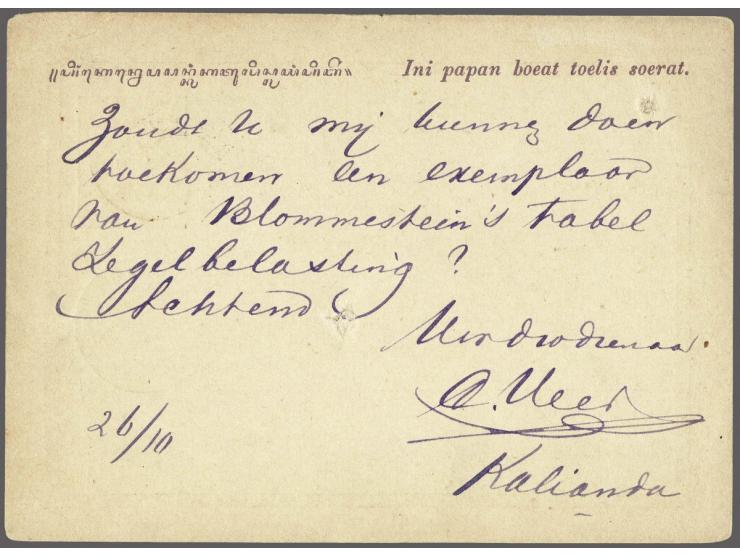 Ini papan boeat toelis soerat.
Zoudt U mij kunnen doen
toekomen een exemplaar
van Blommestein's tabel
Zegelbelasting?
Achtend
Uw dw dienaar.
26/10
Kalianda